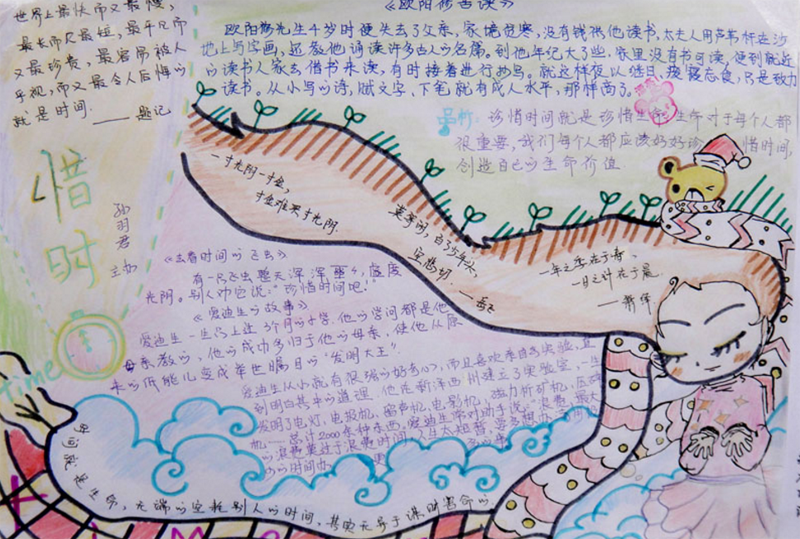 世界上最快而又最慢，
最长而又最短，最平凡而
又最珍贵，最容易被人
忽视，而又最令人后悔的
就是时间. ——题记
《欧阳修苦读》
欧阳修先生4岁时便失去了父亲，家境贫寒，没有钱供他读书，太夫人用芦苇杆在沙
地上写字画，还教他诵读许多古人的名篇。到他年纪大了些，家里没有书可读，便到就近
的读书人家去借书来读，有时接着进行抄写。就这样夜以继日，废寝忘食，只是致力
读书。从小写的诗，赋文字，下笔就有成人水平，那样高了。
赏析：珍惜时间就是珍惜生命，生命对于每个人都
很重要，我们每个人都应该好好珍惜时间，
创造自己的生命价值
惜时
孙明君
主办
一寸光阴一寸金，
寸金难买寸光阴.
莫等闲，白了少年头，
空悲切. ——岳飞
一年之季在于春，
一日之计在于晨.
——萧绎
《去看时间的飞去》
有一只飞虫整天浑浑噩噩，虚度
光阴。别人劝它说："珍惜时间吧！"
《爱迪生的故事》
爱迪生一生只上过3个月的小学，他的学问都是他
母亲教的，他的成功多归于他的母亲，使他从原
来的低能儿变成举世瞩目的"发明大王"
爱迪生从小就有很强的好奇心，而且喜欢亲自去实验，直
到明白其中的道理 他在新泽西州建立了实验室，一生
发明了电灯，电报机，留声机，电影机，磁力析矿机，压碎
机……总计2000余种东西，爱迪生常对助手说："浪费，最大
的浪费莫过于浪费时间 人生太短暂 要多想办法
time
时间就是生命，无端的空耗别人的时间，其实无异于谋财害命的.